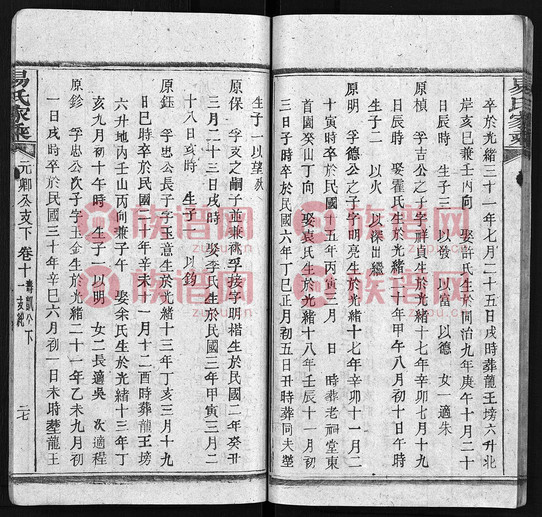 易氏家乘
卒於光緒三十一年七月二十五日戌時葬龍王塝六升北
岸亥巳兼壬丙向 娶許氏生於同治九年庚午十月二十
日辰時 生子三 以發 以富 以德 女一適朱
原楨 孚吉公之子字祥貞生於光緒十七年辛卯七月十九
日辰時 娶瞿氏生於光緒二十年甲午八月初十日午時
生子二 以火 以深出繼
原明 孚德公之子字明亮生於光緒十七年辛卯十一月二
十寅時卒於民國十五年丙寅 月 日 時葬老祠堂東
首園癸山丁向 娶袁氏生於光緒十八年壬辰十一月初
三日子時卒於民國六年丁巳正月初五日丑時葬同夫塋
生子一以望
原保 孚支之嗣子並兼孚孩字明楷生於民國二年癸丑
三月二十三日戌時 娶李氏生於民國三年甲寅三月二
十八日亥時 生子一以鈞
原鈺 孚忠公長子字玉意生於光緒十三年丁亥三月十九
日巳時卒於民國二十年辛未十一月十二酉時葬龍王塝
六升地內壬山丙向兼子午 娶余氏生於光緒十三年丁
亥九月初十午時 生子一以明 女二長適吳 次適程
原鈐 孚忠公次子字玉金生於光緒二十一年乙未九月初
一日戌時卒於民國三十年辛巳六月初一日未時塟龍王
易氏家乘
元卿公支下 卷十一 壽凱公下